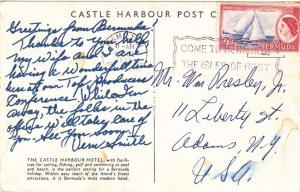 CASTLE HARBOUR POST C
Greetings from Bermuda.
Thanks to you, Bill,
my wife and I are
having a wonderful time
here at our Top Producers
Conference. While I'm
away, the folks in the
office will take care of
See you Soon
THE CASTLE HARBOUR HOTEL, with facili-
ties for sailing, fishing, golf and swimming at pool
and beach, is the perfect setting for a Bermuda
holiday. Within easy reach of the Island's finest
attractions, it is Bermuda's most modern hotel.
COME TO
THE ISLES OF REST
POSTAGE
BERMUDA
Mr. Wm Presley, Jr.
11 Liberty St.
Adams, N.Y.
USA